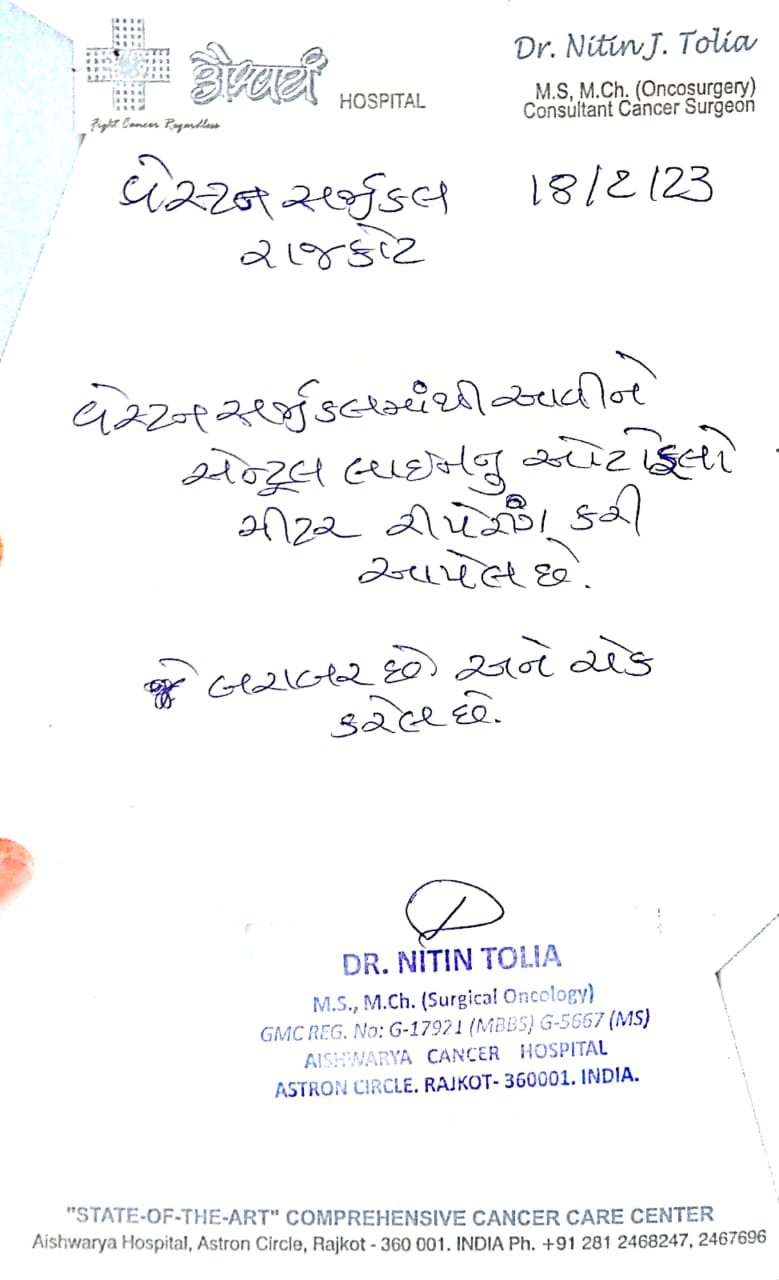 ઐશ્વર્ય HOSPITAL
Fight Cancer Regardless
Dr. Nitin J. Tolia
M.S, M.Ch. (Oncosurgery)
Consultant Cancer Surgeon
વેસ્ટન સર્જીકલ 18/2/23
રાજકોટ
વેસ્ટન સર્જીકલમાંથી આવીને
સેન્ટ્રલ લાઇનનુ ઓટો ફ્લો
મીટર રીપેરીંગ કરી
આપેલ છે.
જે બરાબર છે અને ચેક
કરેલ છે.
DR. NITIN TOLIA
M.S., M.Ch. (Surgical Oncology)
GMC REG. No: G-17921 (MBBS) G-5667 (MS)
AISHWARYA CANCER HOSPITAL
ASTRON CIRCLE. RAJKOT- 360001. INDIA.
"STATE-OF-THE-ART" COMPREHENSIVE CANCER CARE CENTER
Aishwarya Hospital, Astron Circle, Rajkot - 360 001. INDIA Ph. +91 281 2468247, 2467696